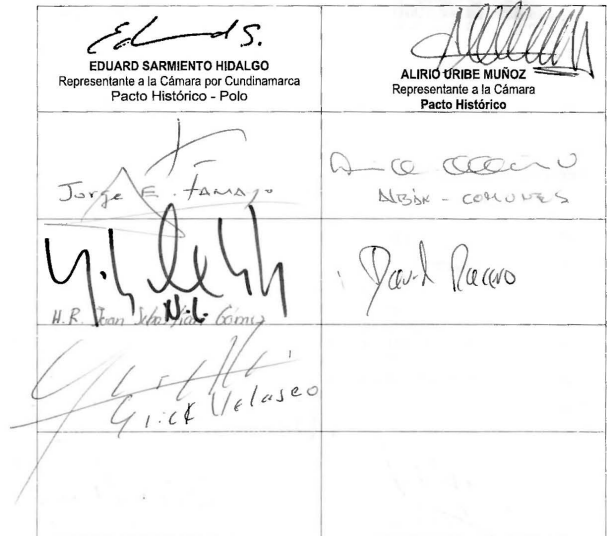 Eduard S.
EDUARD SARMIENTO HIDALGO
Representante a la Cámara por Cundinamarca
Pacto Histórico - Polo
ALIRIO URIBE MUÑOZ
Representante a la Cámara
Pacto Histórico
Jorge E. Tamayo
ALBÁN - COMUNES
H.R. Juan Sebastián Gómez
N.L.
David Racero
Erick Velasco